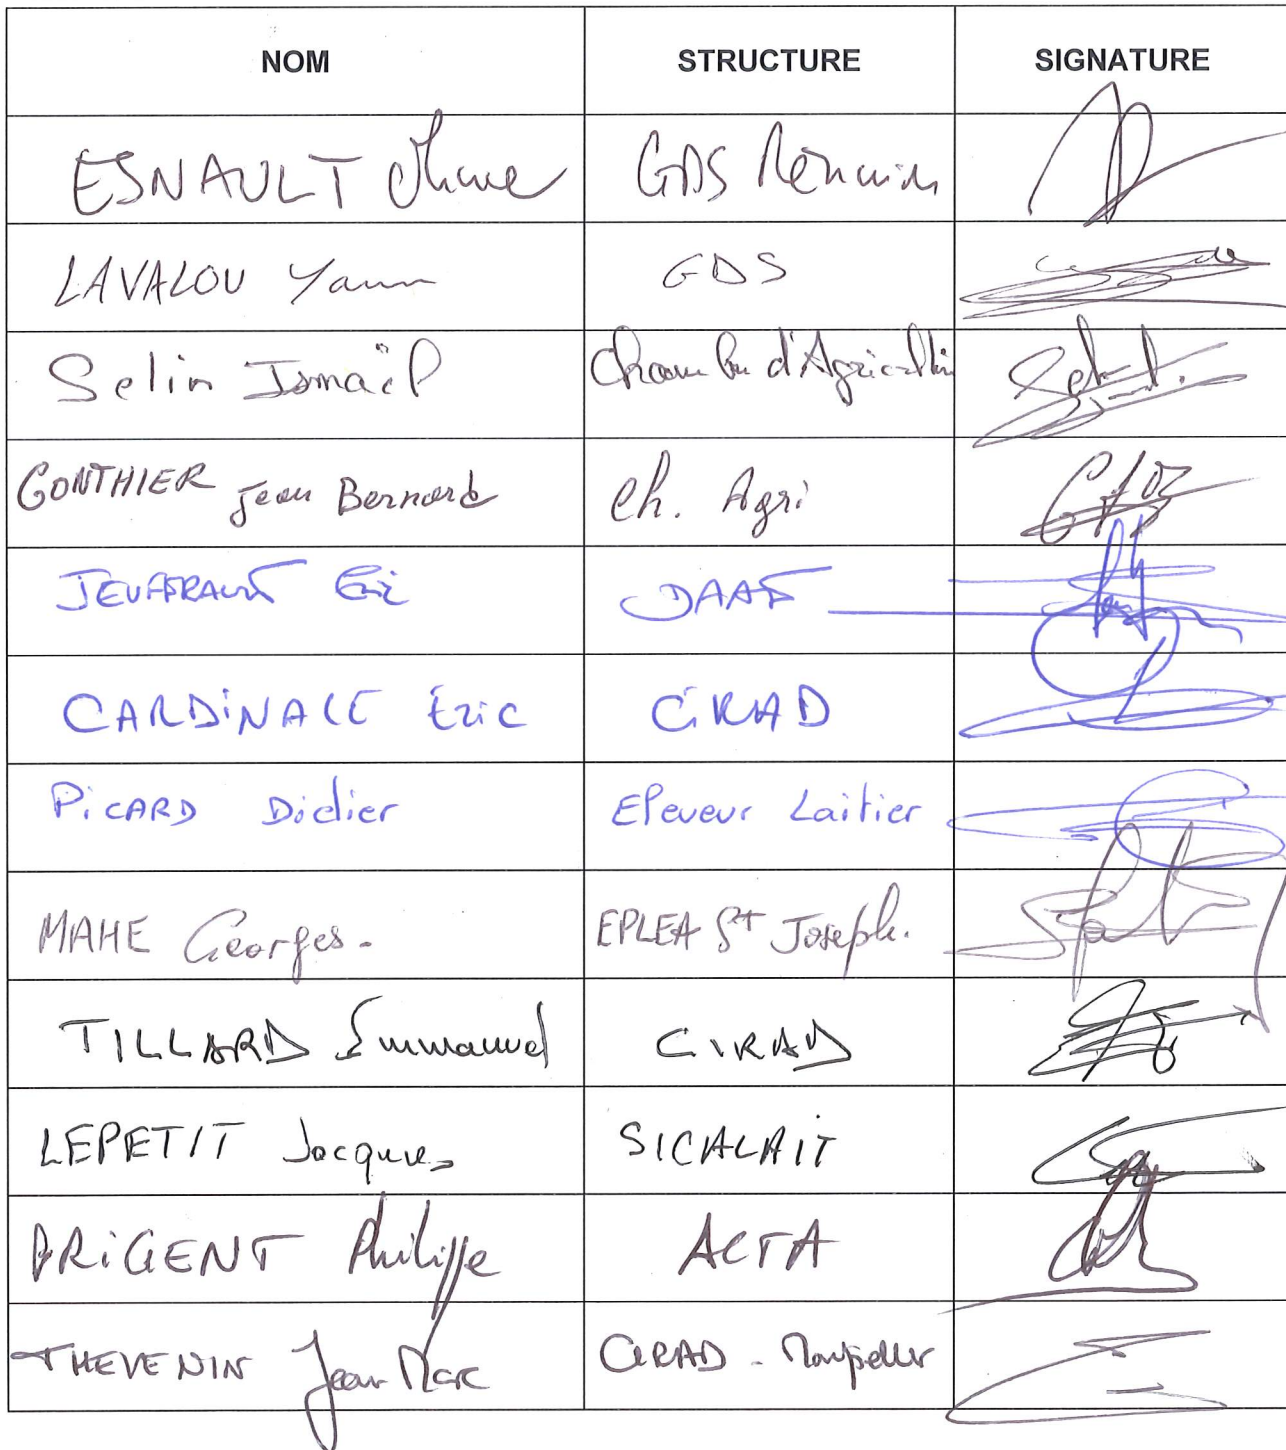 NOM STRUCTURE SIGNATURE
ESNAULT Olivier GDS Réunion
LAVALOU Yann GDS
Selin Ismaël Chambre d'Agriculture
GONTHIER Jean Bernard Ch. Agri
JEUFFRAULT Eric DAAF
CARDINALE Eric CIRAD
PICARD Didier Eleveur Laitier
MAHE Georges. EPLEA St Joseph.
TILLARD Emmanuel CIRAD
LEPETIT Jacques SICALAIT
PRIGENT Philippe ACTA
THEVENIN Jean Marc CIRAD - Montpellier